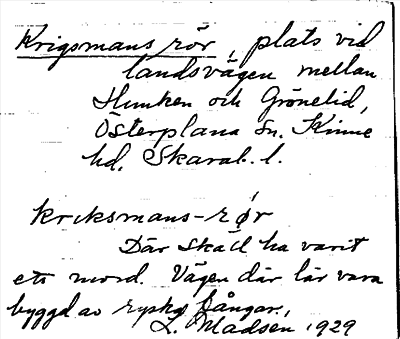 Krigsmans rör, plats vid
landsvägen mellan
Hunken och Grönelid,
Österplana sn. Kinne
hd. Skarab. l.
kriksmans-rør
Där skall ha varit
ett mord. Vägen där lär vara
byggd av ryska fångar.
L. Madsen 1929